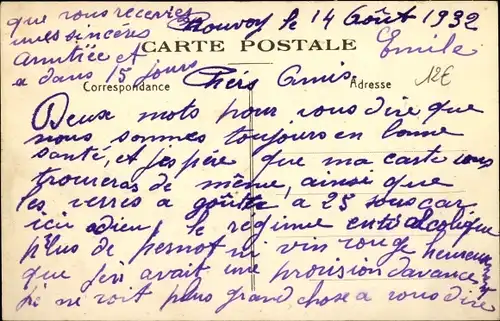 Rouvoy le 14 Août 1932
CARTE POSTALE
Correspondance
Adresse
12€
Chers Amis
Deux mots pour vous dire que
nous sommes toujours en bonne
santé, et j'espère que ma carte vous
trouveras de même, ainsi que
les verres a goutte a 25 sous car
ici adieu, le régime
plus de pernot ni vin rouge heureusement
que j'en avait une provision d'avance
Je ne voit plus grand chose a vous dire
que vous recevrez
mes sincères
amitiée et
a dans 15 jours
Emile